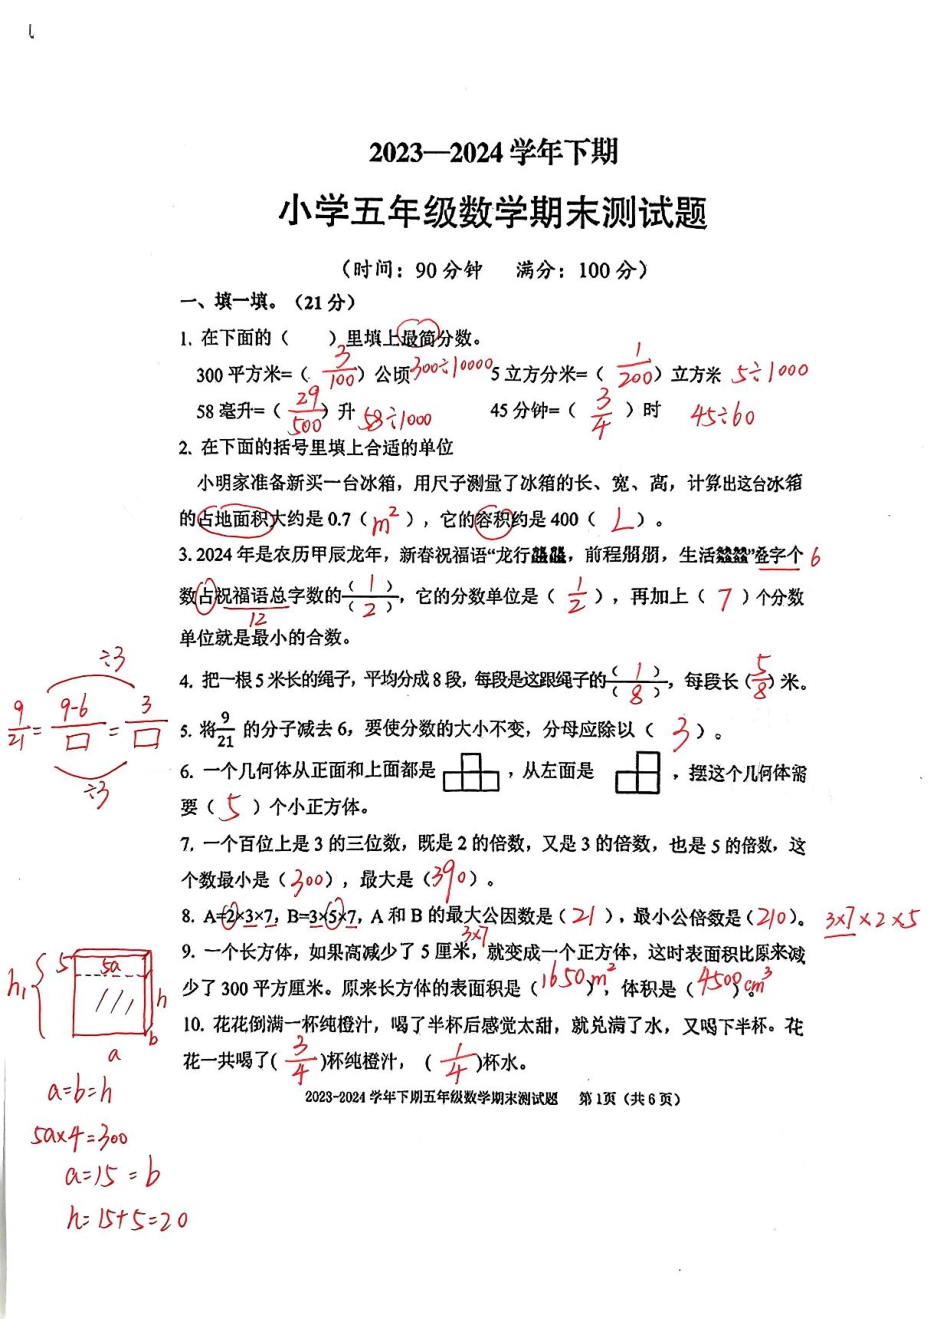 2023—2024 学年下期
小学五年级数学期末测试题
（时间：90 分钟 满分：100 分）
一、填一填。（21 分）
1. 在下面的（ ）里填上最简分数。
300 平方米=（ 3/100 ）公顷 300÷10000 5 立方分米=（ 1/200 ）立方米 5÷1000
58 毫升=（ 29/500 ）升 58÷1000 45 分钟=（ 3/4 ）时 45÷60
2. 在下面的括号里填上合适的单位
小明家准备新买一台冰箱，用尺子测量了冰箱的长、宽、高，计算出这台冰箱
的占地面积大约是 0.7（ m² ），它的容积约是 400（ L ）。
3. 2024 年是农历甲辰龙年，新春祝福语“龙行龘龘，前程朤朤，生活䲜䲜”叠字个 6
数占祝福语总字数的（ 1 ）/（ 2 ），它的分数单位是（ 1/2 ），再加上（ 7 ）个分数
12
单位就是最小的合数。
4. 把一根 5 米长的绳子，平均分成 8 段，每段是这跟绳子的（ 1 ）/（ 8 ），每段长（ 5/8 ）米。
5. 将 9/21 的分子减去 6，要使分数的大小不变，分母应除以（ 3 ）。
÷3
9/21 = 9-6/□ = 3/□
÷3
6. 一个几何体从正面和上面都是 ，从左面是 ，摆这个几何体需
要（ 5 ）个小正方体。
7. 一个百位上是 3 的三位数，既是 2 的倍数，又是 3 的倍数，也是 5 的倍数，这
个数最小是（ 300 ），最大是（ 390 ）。
8. A=2×3×7，B=3×5×7，A 和 B 的最大公因数是（ 21 ），最小公倍数是（ 210 ）。 3×7×2×5
3×7
9. 一个长方体，如果高减少了 5 厘米，就变成一个正方体，这时表面积比原来减
少了 300 平方厘米。原来长方体的表面积是（ 1650 m² ），体积是（ 4500 cm³ ）。
10. 花花倒满一杯纯橙汁，喝了半杯后感觉太甜，就兑满了水，又喝下半杯。花
花一共喝了（ 3/4 ）杯纯橙汁，（ 1/4 ）杯水。
h₁ 5 5a h b
a
a=b=h
5a×4=300
a=15=b
h=15+5=20
2023-2024 学年下期五年级数学期末测试题 第 1页（共 6 页）